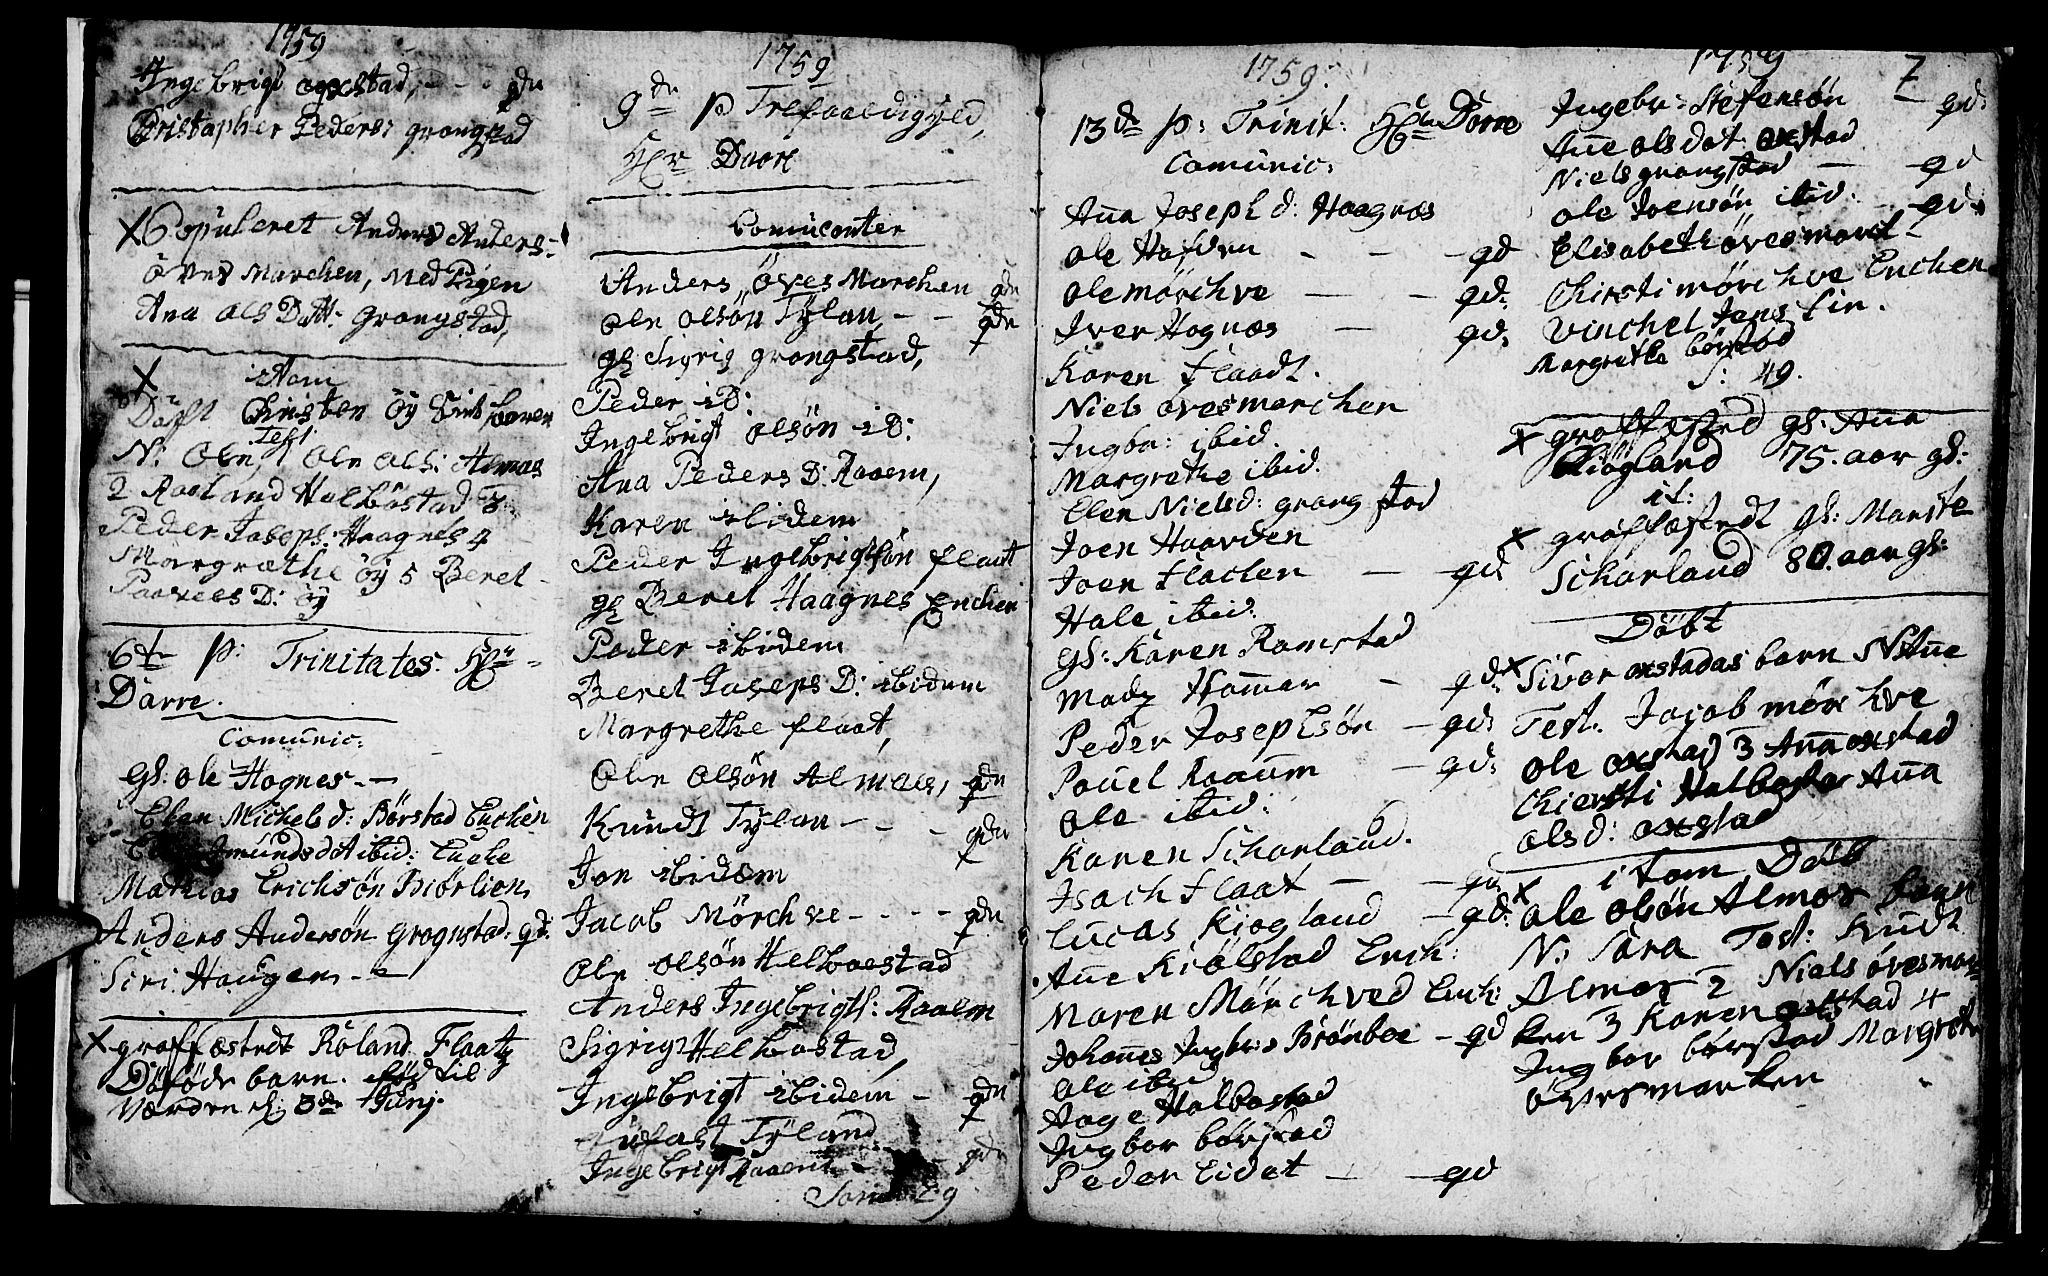 1759
Ingebrigt oxstad, - - - qdn
Christopher Peders: grongstad
X Copuleret Anders Anders-
övnes Marchen, Med Pigen
Ana ols Datt: Grongstad,
X itam
Döfft Christen öy
N: Ole Test Ole ols: Almaas
2 Roeland Halbostad 3
Peder Joseps: Haagnes 4
Margræthe öy 5 Beret
Paavels D: öy
6te p: Trinitates: Hr
Darre.
Comunic:
gl: ole Hognes - -
Elen Michels d: Börstad Enchen
Amunds dat ibid: Encke
Mathias Erichsön Biörlien
Anders Andersön Grognstad. qd.
Siri Haugen - -
X graffæstedt Roland Flaatz
Döföde barn. föd til
Verden d: 3de Junj.
1759
9de p Trefoeldigh​ed,
Hr Daare
Comuicanter
Anders övesMarchen qdn
Ole olsön Tylan - - qdn
gl Sigrig grongstad,
Peder iD:
Ingebrigt olsön iD:
Ana Peders D: Raaem,
Karen ibidem
Peder Ingebrigtsön flaat
gl Beret Haagnes Enchen
Peder ibidem
Beret Joseps D: ibidem
Margrethe flaat,
Ole olsön Almaas, qdn
Knudt Tylan - - - qdn
Jon ibidem
Jacob Mörchve - - - - qdn
Ole olsön Helboestad
Anders Ingebrigts: Raaem
Sigrig Helbostad,
Ingebrigt ibidem - qdn
Tyland
Ingebrigt Raaem - qdn
29
1759.
13de p: Trinit: Hr Dorre
Comunic:
Aña Joseph d: Haagnæs
ole Hafden - - - qd
ole mörchve - - qd:
Iver Hognæs - qd.
Karen flaadt.
Niels övesmarchen
Ingbr: ibid.
Margrethe ibid.
Elen Niels d: grongstad
Joen Haarden
Joen flachen - - qd
Hale ibid:
gl: Karen Ramstad
Madz Hamar - qd.
Peder Josephsön - qd:
Povel Raaum - qd:
ole ibid:
Karen Schorland.
Isach flaat - - qd
Lucas Kiogland - qd:
Añe Kiölstad Ench:
Maren Mörchved Ench:
Johannes Ingbr:s Brönboe - qd
ole ibid
Aage Halbostad
Ingbor börstad
Peder Eidet - - qd
1759
7
Ingebr: Stefensön qd:
Añe ols dat oxstad
Niels grongstad - qd
ole Joensön ibid: - qd:
Elisabeth övesmarck -
Chirsti mörchve Enchen
Vinchel Jens lin.
Margrethe börstad
S: 49.
X graffæsted gl: Aña
Kiogland 75. aar gl:
it:
X graffæstedt gl: Marite
Schorland 80. aar gl:
Döbt
X Sivor oxstadas barn N: Añe
Test: Jacob mörchve
ole oxstad 3 Aña oxstad
Chiersti Halbostad Aña
ols d: oxstad
itam Döbt
X ole olsön Almos barn
N: Sara Test: Knudt
Almos 2 Niels övesmar-
ken 3 Karen oxstad 4
Ingbor börstad Margrete
övesmarken